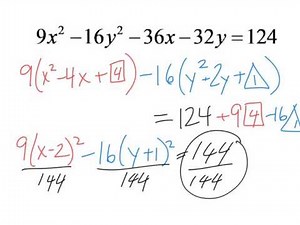 9x² − 16y² − 36x − 32y = 124
9(x² − 4x + 4) − 16(y² + 2y + 1)
= 124 + 9 4 − 16 1
9(x − 2)²/144 − 16(y + 1)²/144 = 144/144